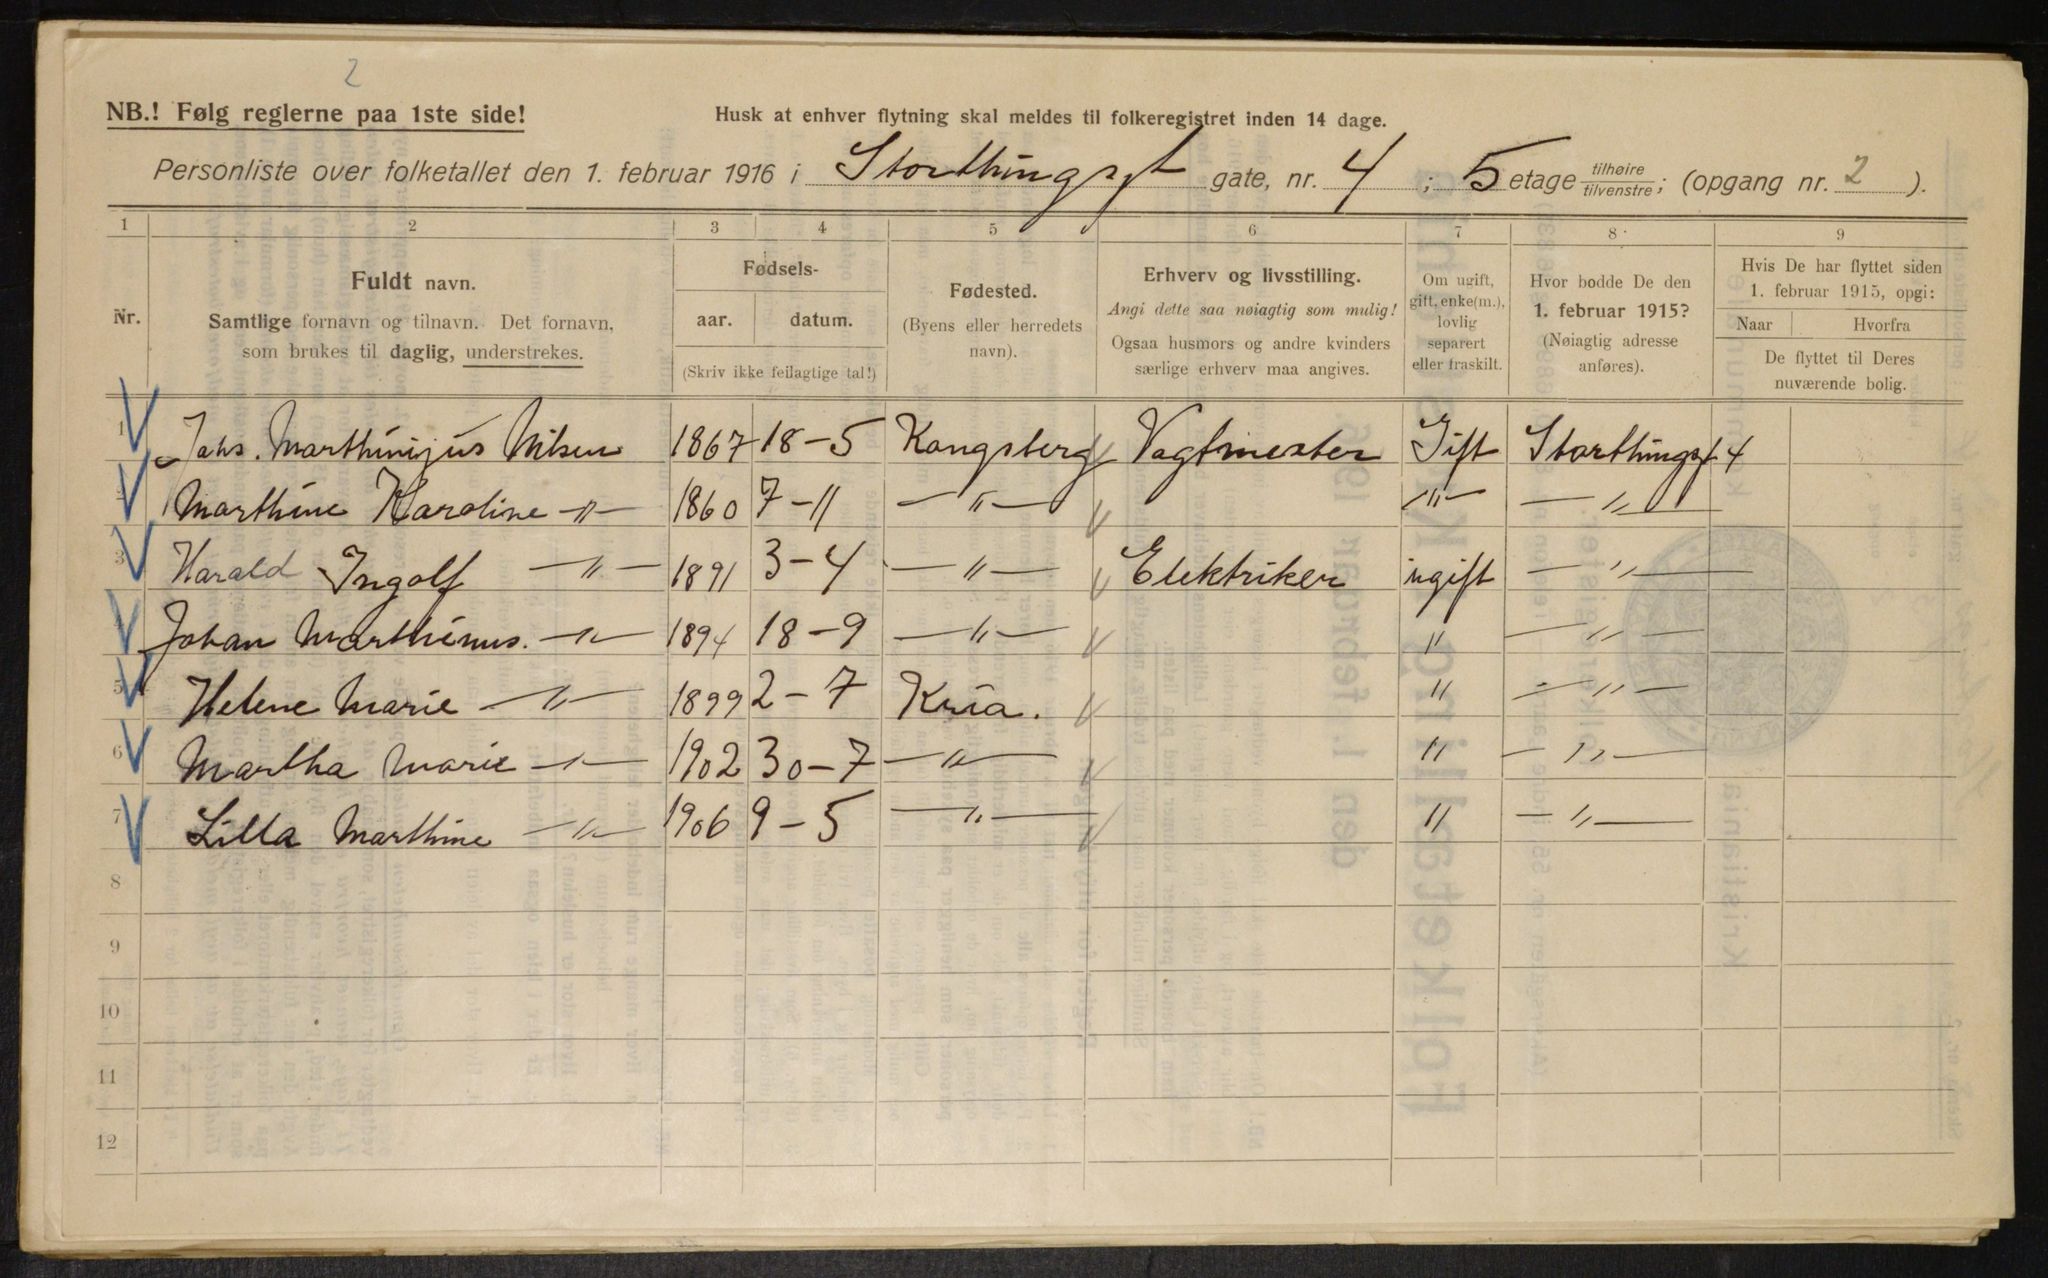 2
NB.! Følg reglerne paa 1ste side!
Husk at enhver flytning skal meldes til folkeregistret inden 14 dage.
Personliste over folketallet den 1. februar 1916 i Storthingsgt gate, nr. 4 ; 5 etage tilhøire/tilvenstre; (opgang nr. 2 ).
1 2 3 4 5 6 7 8 9
Nr.
Fuldt navn.
Samtlige fornavn og tilnavn. Det fornavn,
som brukes til daglig, understrekes.
Fødsels-
aar. datum.
(Skriv ikke feilagtige tal!)
Fødested.
(Byens eller herredets
navn).
Erhverv og livsstilling.
Angi dette saa nøiagtig som mulig!
Ogsaa husmors og andre kvinders
særlige erhverv maa angives.
Om ugift,
gift, enke(m.),
lovlig
separert
eller fraskilt.
Hvor bodde De den
1. februar 1915?
(Nøiagtig adresse
anføres).
Hvis De har flyttet siden
1. februar 1915, opgi:
Naar Hvorfra
De flyttet til Deres
nuværende bolig.
1 Johs. Marthinijus Nilsen 1867 18-5 Kongsberg Vagtmester Gift Storthingsgt 4
2 Marthine Karoline -"- 1860 7-11 -"- -"- -"-
3 Harald Ingolf -"- 1891 3-4 -"- Elektriker ugift -"-
4 Johan Marthinus. -"- 1894 18-9 -"- " -"-
5 Helene Marie -"- 1899 2-7 Kria. " -"-
6 Martha Marie -"- 1902 30-7 -"- " -"-
7 Lilla Marthine -"- 1906 9-5 -"- " -"-
8
9
10
11
12